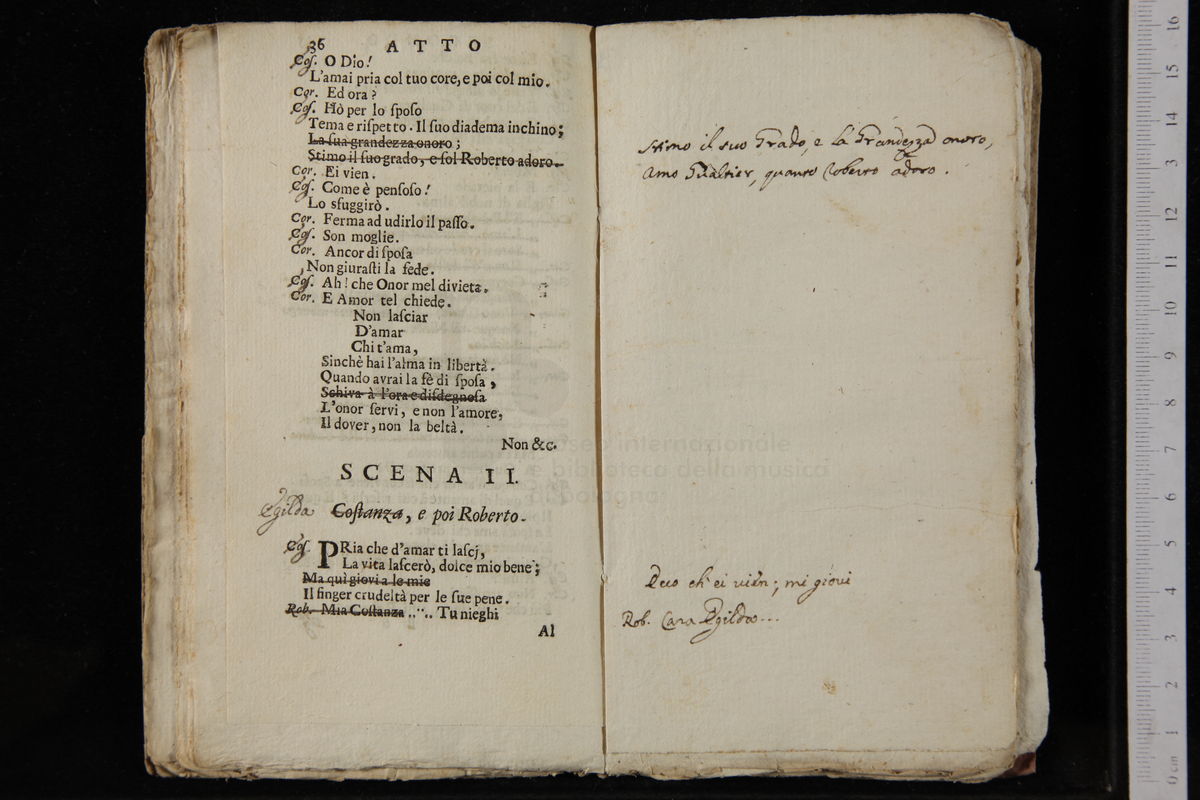 36 ATTO
Cos. O Dio!
L'amai pria col tuo core, e poi col mio.
Cor. Ed ora?
Cos. Hò per lo sposo
Tema e rispetto. Il suo diadema inchino;
La sua grandezza onoro;
Stimo il suo grado, e sol Roberto adoro.
Cor. Ei vien.
Cos. Come è pensoso!
Lo sfuggirò.
Cor. Ferma ad udirlo il passo.
Cos. Son moglie.
Cor. Ancor di sposa
Non giurasti la fede.
Cos. Ah! che Onor mel divieta.
Cor. E Amor tel chiede.
Non lasciar
D'amar
Chi t'ama,
Sinchè hai l'alma in libertà.
Quando avrai la fè di sposa,
Schiva à l'ora e disdegnosa
L'onor servi, e non l'amore,
Il dover, non la beltà.
Non &c.
SCENA II.
Egilda Costanza, e poi Roberto.
Cos. PRia che d'amar ti lascj,
La vita lascerò, dolce mio bene;
Ma quì giovi a le mie
Il finger crudeltà per le sue pene.
Rob. Mia Costanza ..... Tu nieghi
Al
Stimo il suo Grado, e la Grandezza onoro,
Amo Gualtier, quanto Roberto adoro.
Ecco ch'ei vien; mi giovi
Rob. Cara Egilda...
museo internazionale
e biblioteca della musica
di bologna
0 cm 1 2 3 4 5 6 7 8 9 10 11 12 13 14 15 16